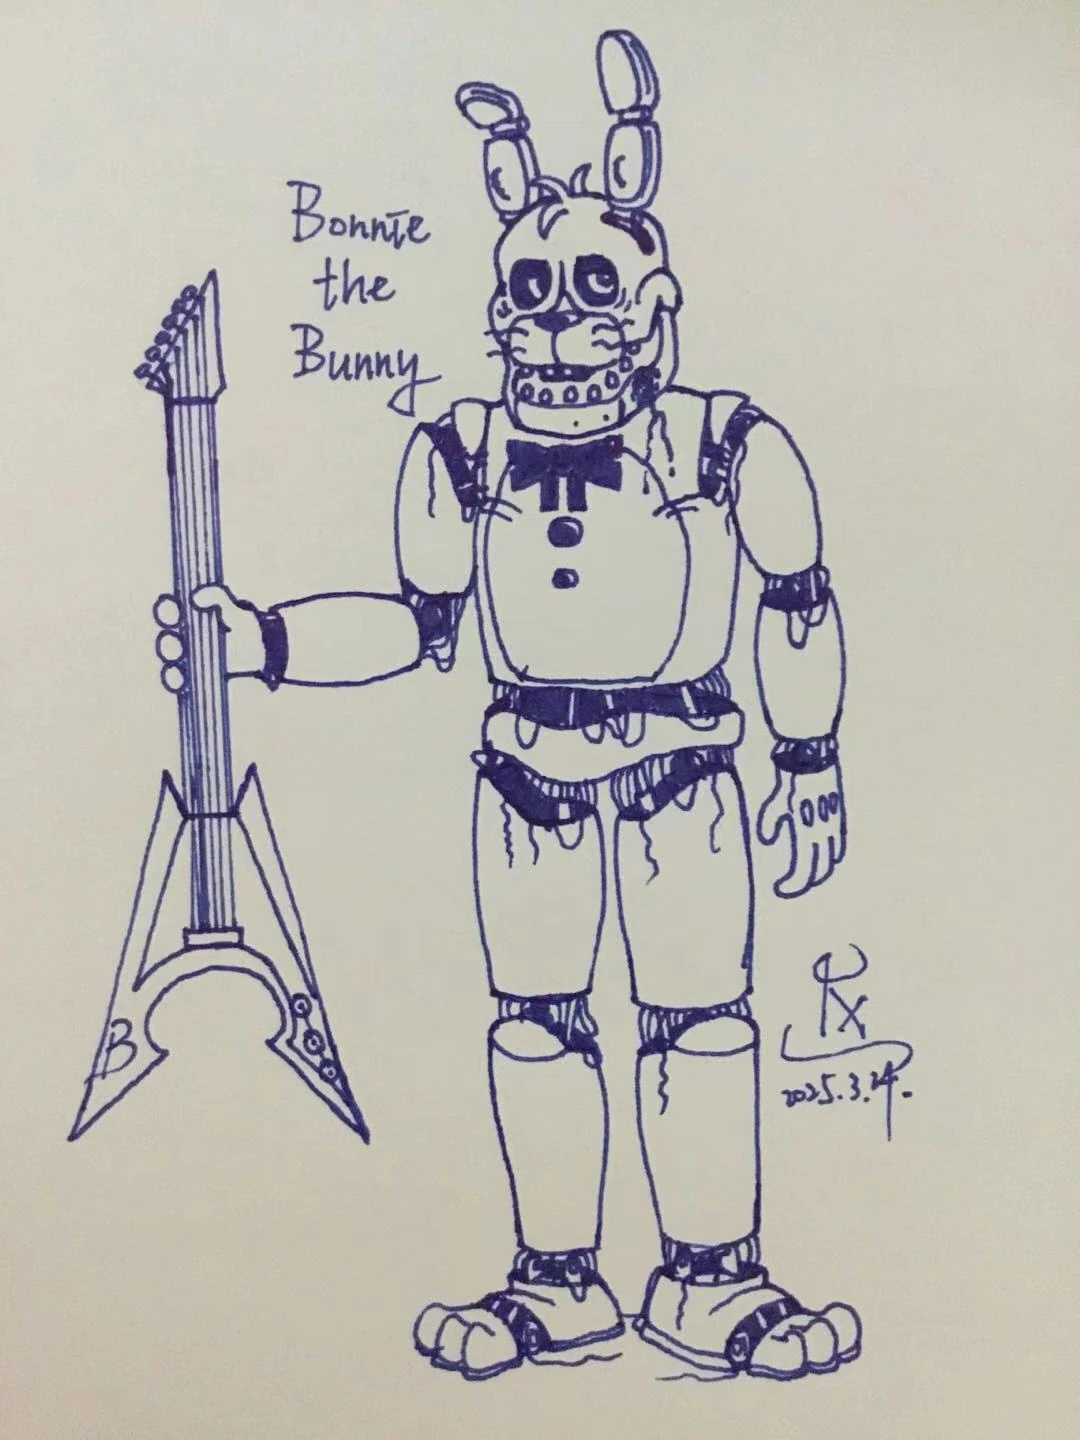 Bonnie
the
Bunny
B
2025.3.24.